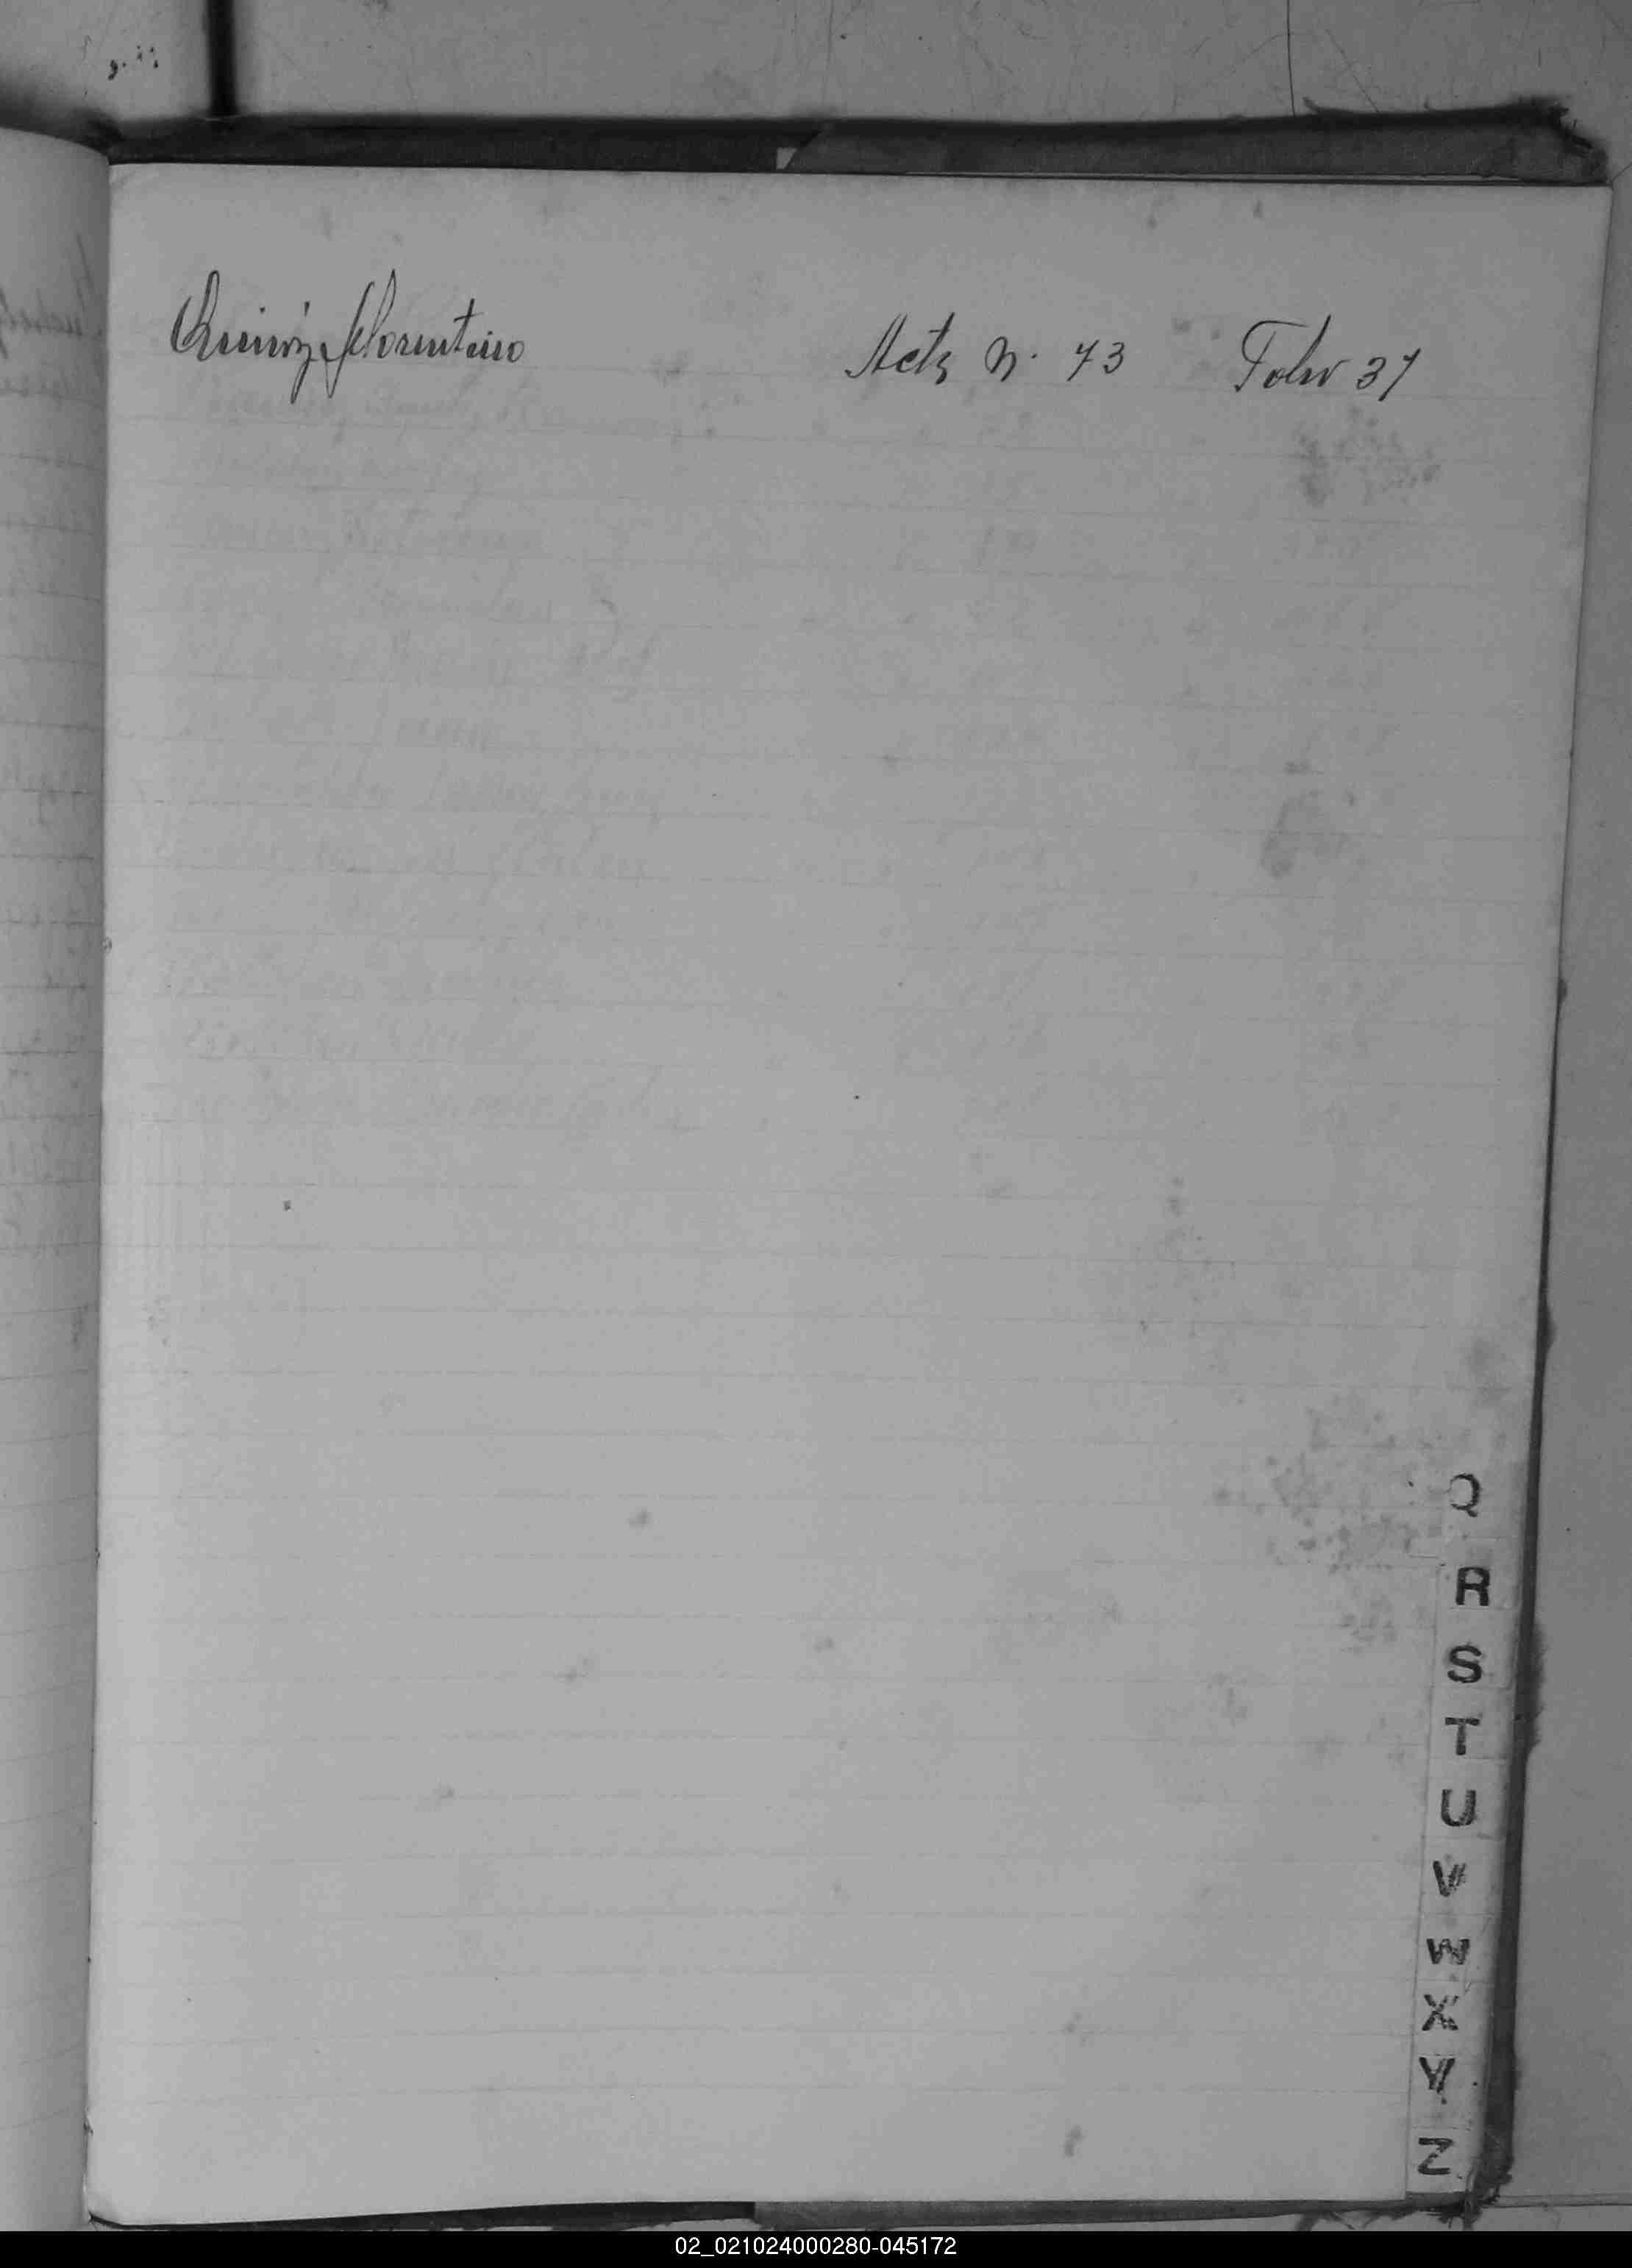 Quiróz Florentino Acta N. 73 Folio 37
Q
R
S
T
U
V
W
X
Y
Z
02_021024000280-045172